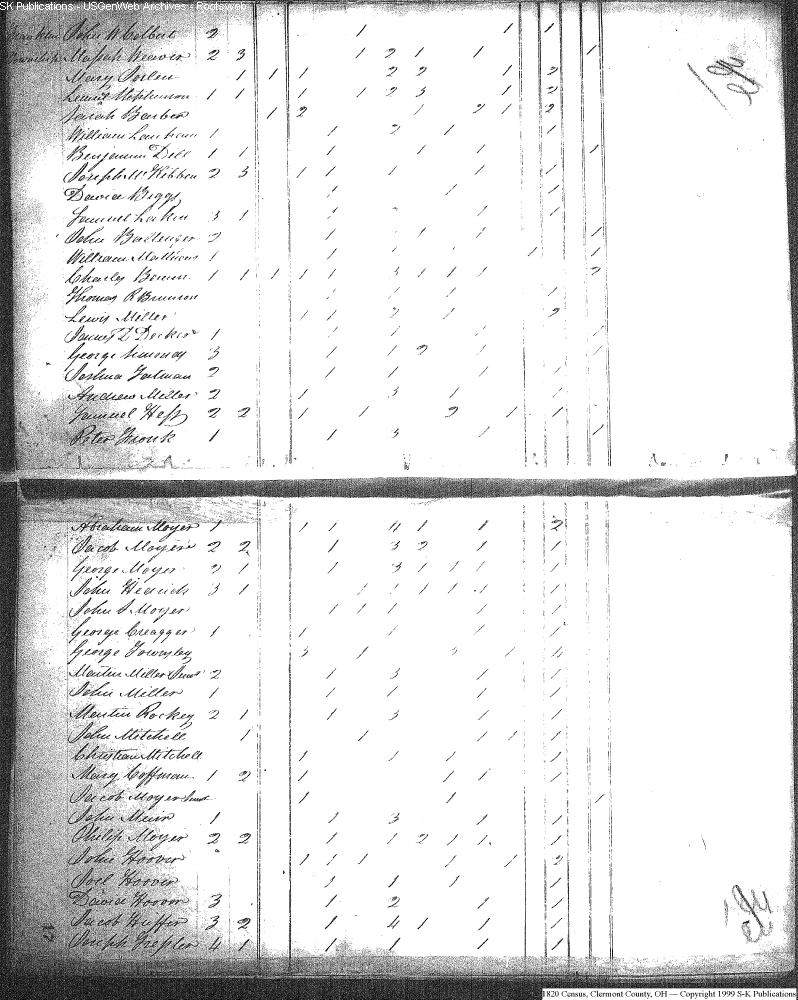 SK Publications - USGenWeb Archives - Rootsweb
John W Colbert 2 1 1 1
Township Weaver 2 3 1 2 1 1 1
Mary 1 1 1 2 2 1 2
Hopkinson 1 1 1 1 2 3 1 2
Sarah Barber 1 2 1 2 1 2
William Lanham 1 1 2 1 1
Benjamin Dell 1 1 1 1 1 1
Joseph McKibben 2 3 1 1 1 1 1 1
David Biggs 1 1 1
Samuel Lakin 3 1 1 1 1
John 2 1 1 1 1 1
William Matthews 1 1 1 1 1
Charles Brown 1 1 1 1 1 3 1 1 1 2
Thomas R Brunson 1 1 1 1
Lewis Miller 1 1 2 1 2
James D Decker 1 1 1 1 1 1
George Simonds 3 1 1 2 1 1
Joshua 2 1 1 1 1
Andrew Miller 2 1 3 1 1
Samuel 2 2 1 1 2 1 1
Peter Fronk 1 1 3 1 1
Abraham Moyer 1 1 1 4 1 1 2
Jacob Moyer 2 2 1 3 2 1 1
George Moyer 2 1 1 3 1 1 1 1
John Hedrick 3 1 1 1 1 1 1 1
John S Moyer 1 1 1 1 1
George Creagger 1 1 1 1 1
George Townsley 3 1 3 1 4
Martin Miller 2 1 3 1 1
John Miller 1 1 1 1 1
Martin Rockey 2 1 1 3 1 1
John Mitchell 1 1 1 1 1
Christian Mitchell 1 1 1 1
Mary Coffman 1 2 1 1 1 1
Jacob Moyer 1 1 1
John Meir 1 1 3 1 1
Philip Moyer 2 2 1 1 2 1 1 1
John Hoover 1 1 1 1 1 2
Joel Hoover 1 1 1 1
David Hoover 3 1 2 1 1
Jacob Huffer 3 2 1 4 1 1 1
Joseph Trepler 4 1 1 1 1 1
194
1820 Census, Clermont County, OH — Copyright 1999 S-K Publications